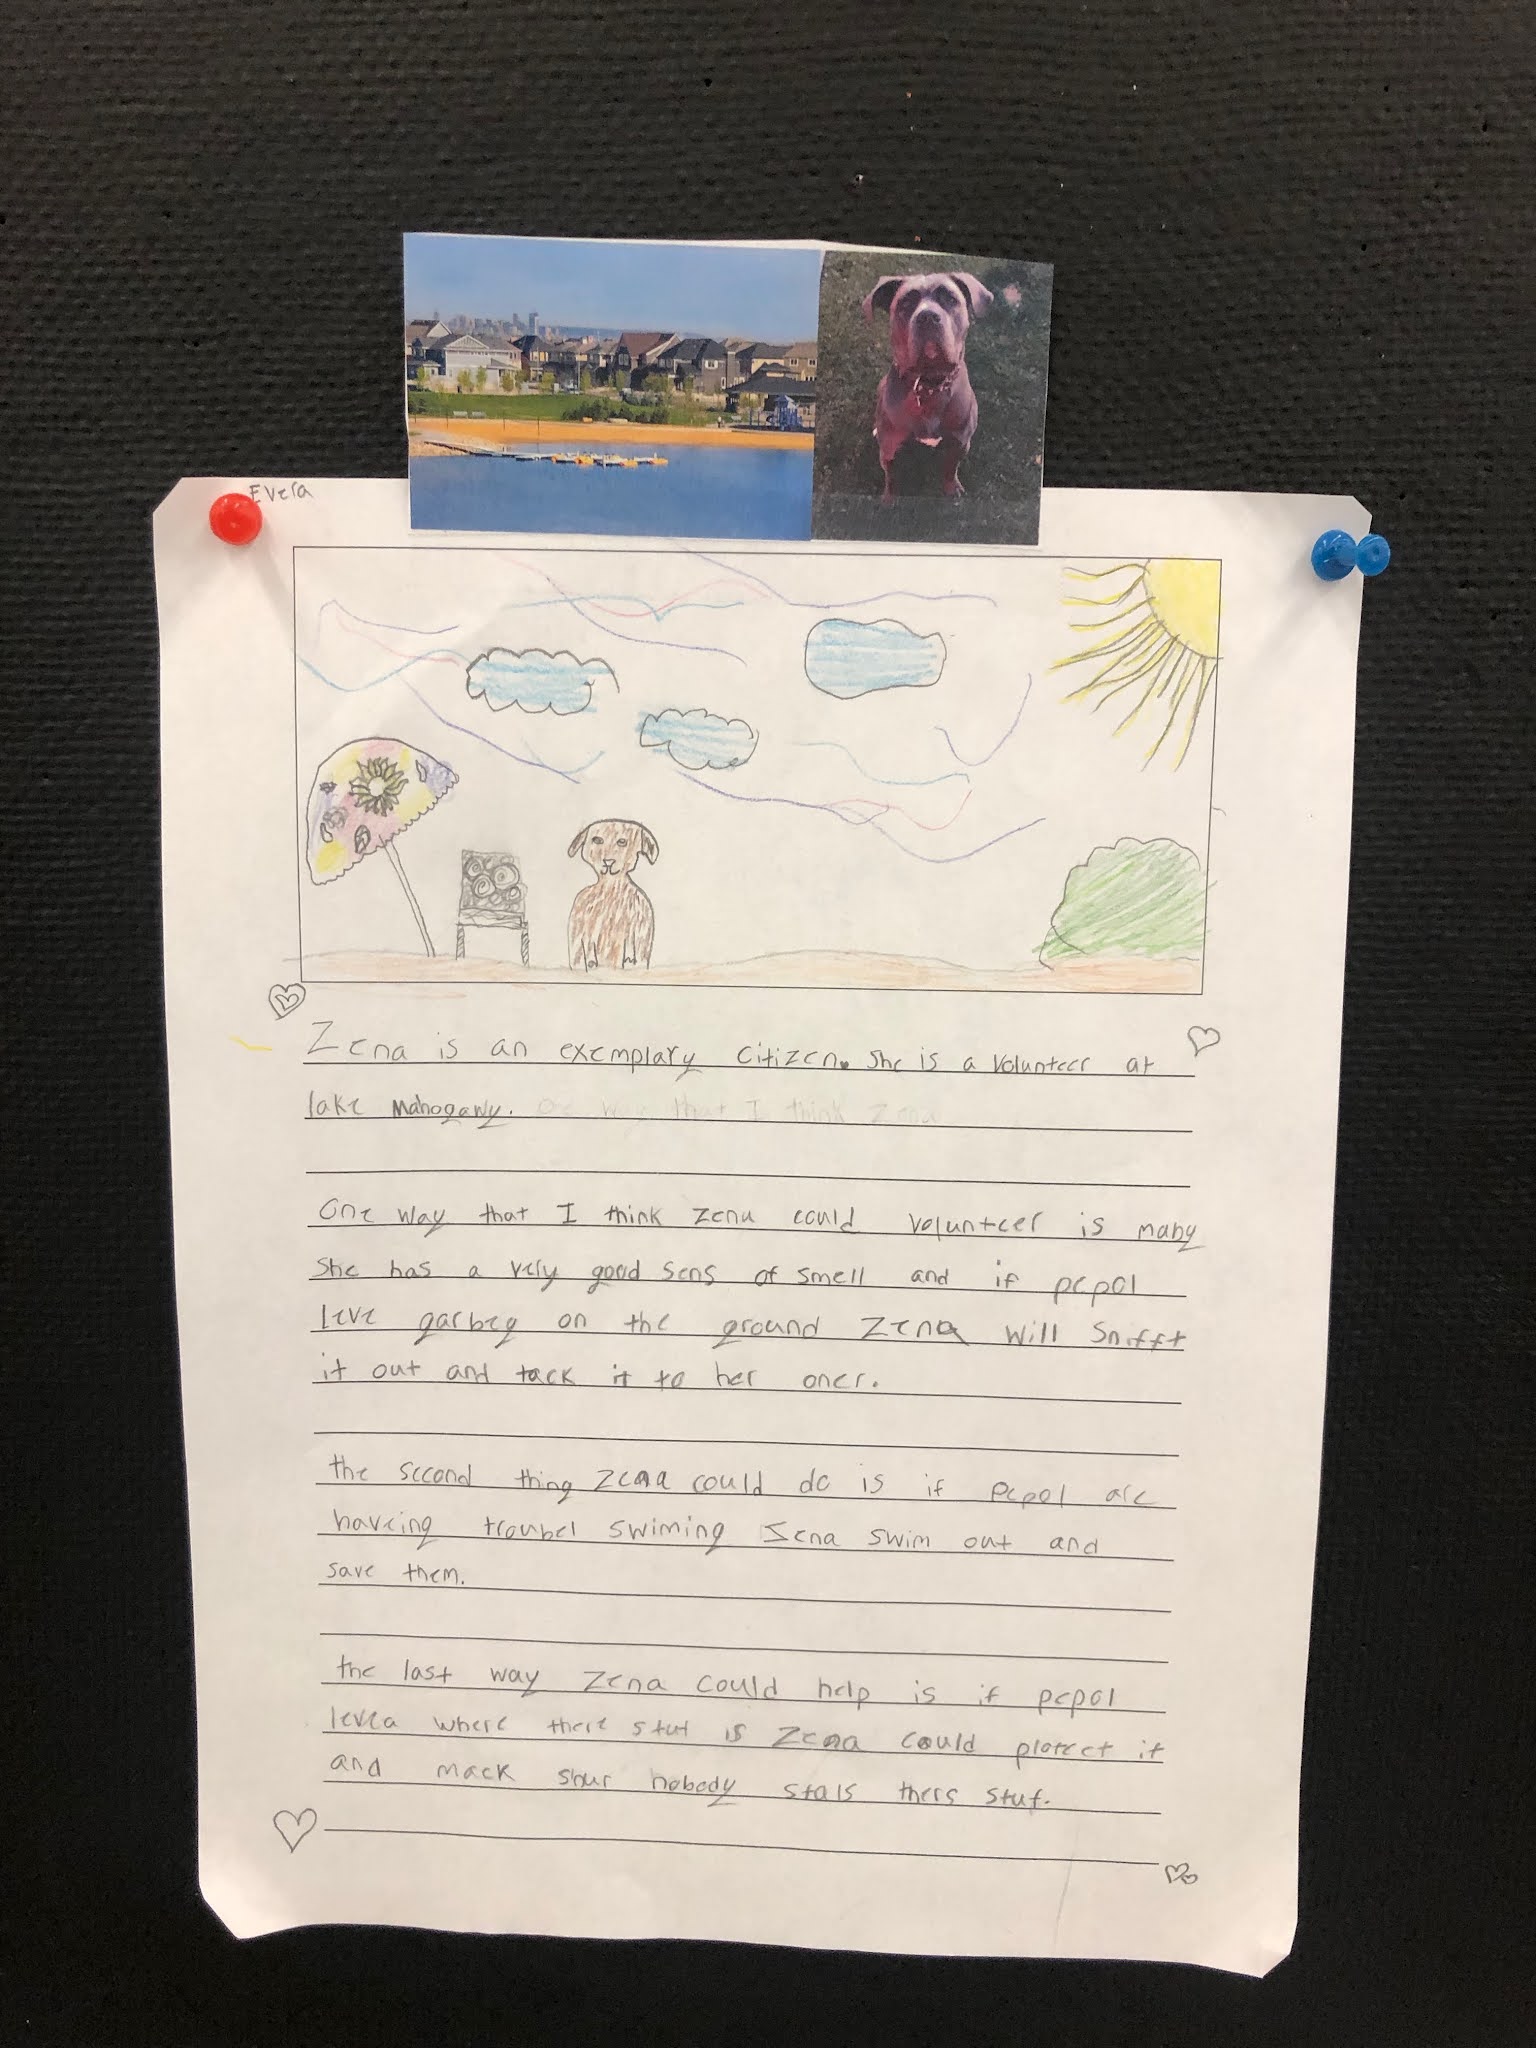 Evera
Zena is an exemplary citizen. She is a volunteer at
lake Mahogany. One way that I think Zena
One way that I think Zena could volunteer is maby
She has a very good sens of smell and if pepol
leve garbeg on the ground Zena will snifft
it out and tack it to her oner.
the second thing Zena could do is if pepol are
haveing troubel swiming Zena swim out and
save them.
the last way Zena could help is if pepol
levea where there stuf is Zena could protect it
and mack shur nobody stals thers stuf.